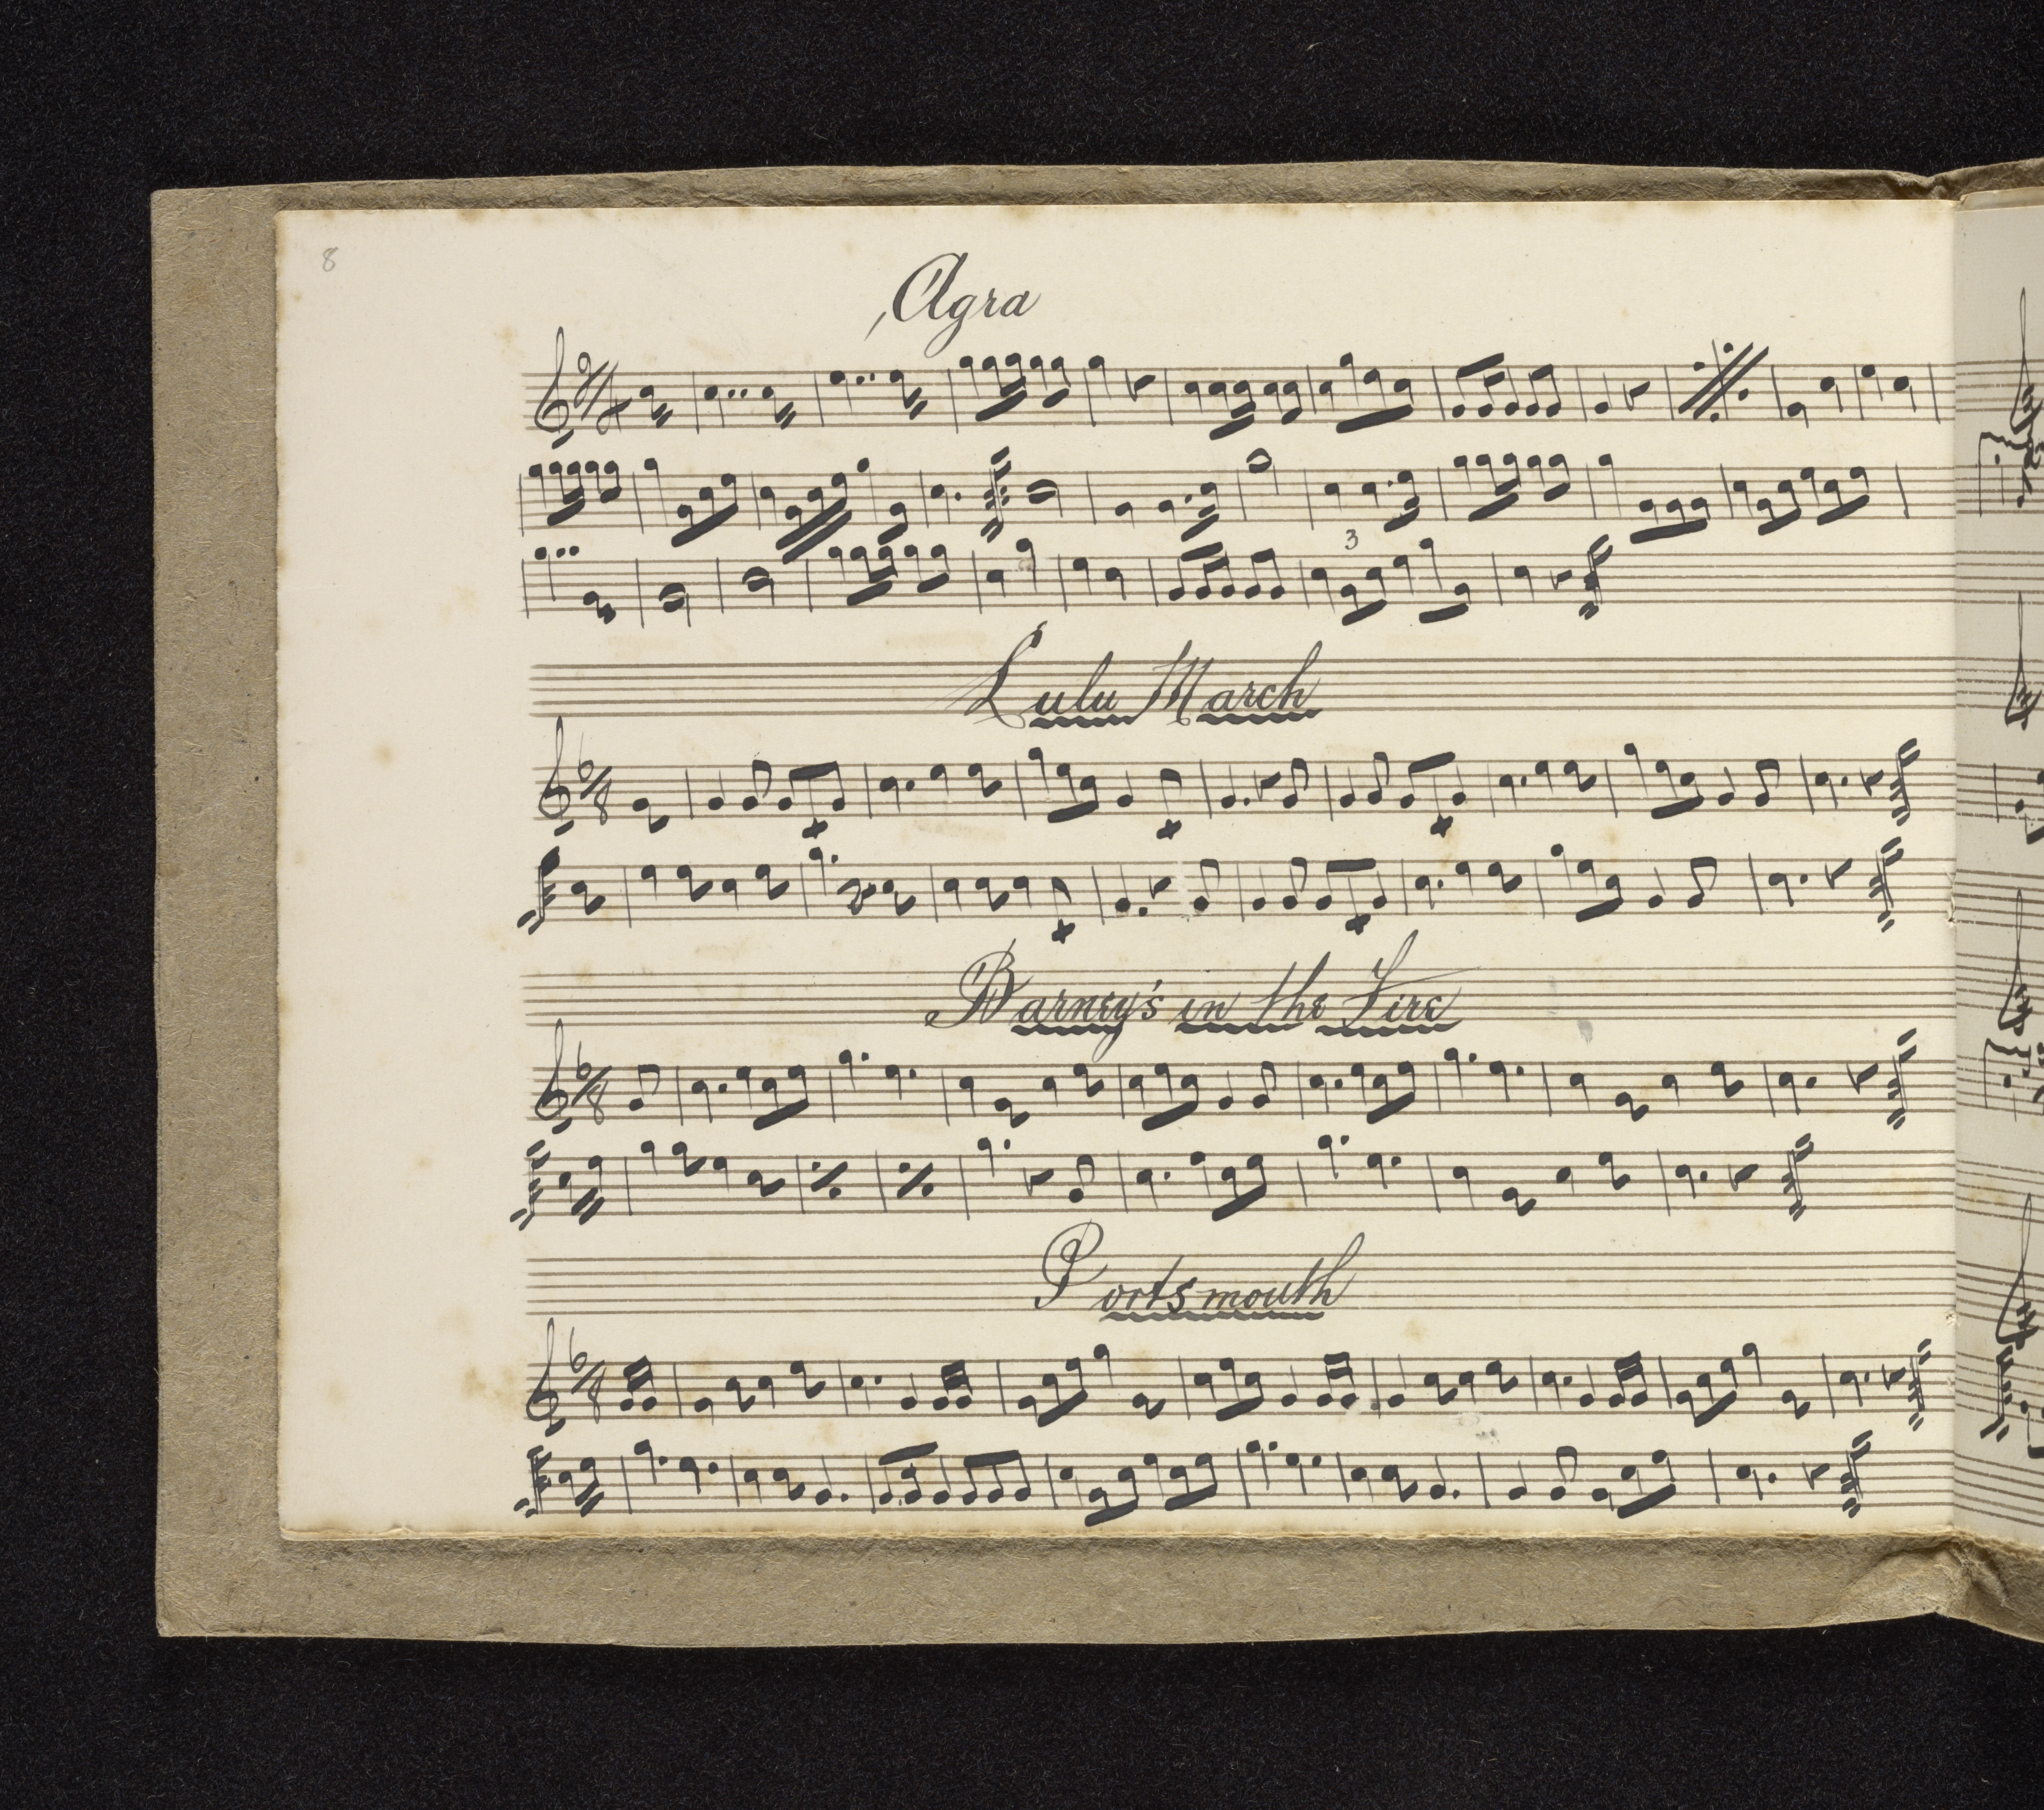 8
Agra
2/4
3
Lulu March
6/8
Barney's in the Fire
6/8
Portsmouth
6/8